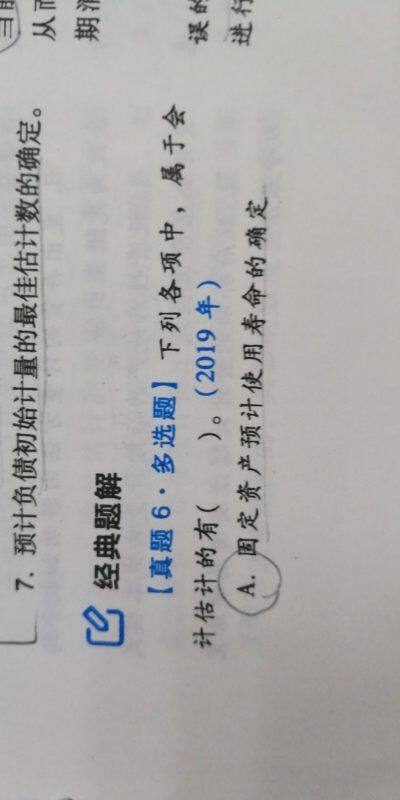 当前
从而
期
误的
进行
7. 预计负债初始计量的最佳估计数的确定。
经典题解
【真题 6·多选题】下列各项中，属于会
计估计的有(　　)。（2019 年）
A. 固定资产预计使用寿命的确定